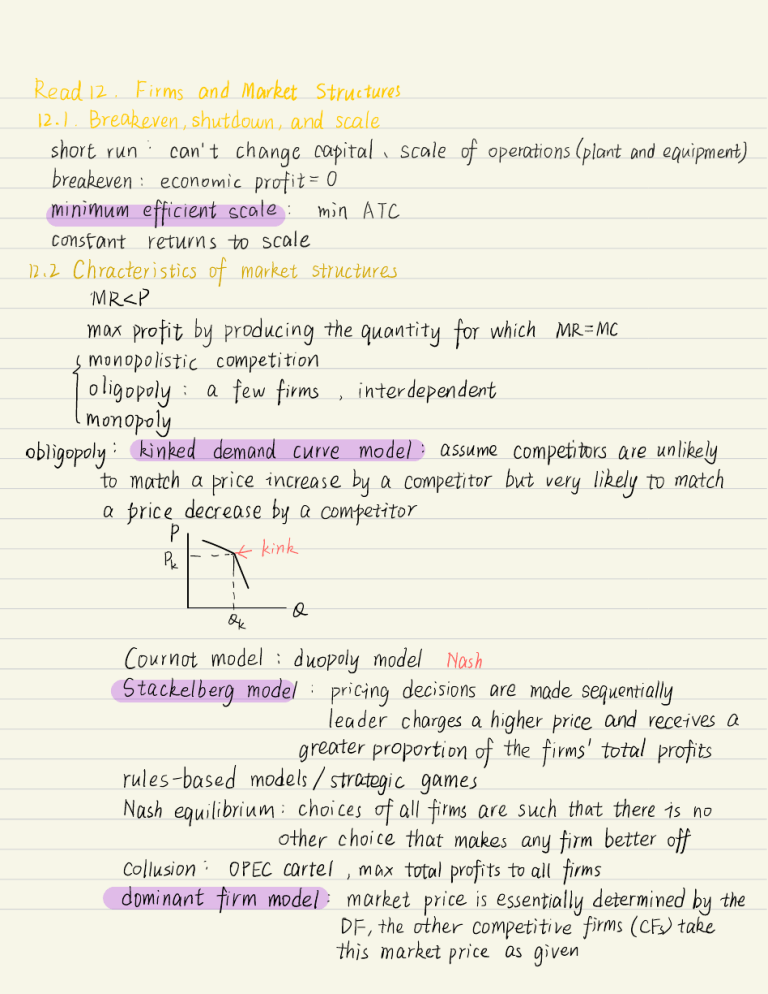 Read 12. Firms and Market Structures
12.1. Breakeven, shutdown, and scale
short run: can't change capital、scale of operations (plant and equipment)
breakeven: economic profit = 0
minimum efficient scale: min ATC
constant returns to scale
12.2 Chracteristics of market structures
MR<P
max profit by producing the quantity for which MR=MC
monopolistic competition
oligopoly: a few firms, interdependent
monopoly
obligopoly: kinked demand curve model: assume competitors are unlikely
to match a price increase by a competitor but very likely to match
a price decrease by a competitor
P
Pk
kink
Q
Qk
Cournot model: duopoly model Nash
Stackelberg model: pricing decisions are made sequentially
leader charges a higher price and receives a
greater proportion of the firms' total profits
rules-based models/strategic games
Nash equilibrium: choices of all firms are such that there is no
other choice that makes any firm better off
collusion: OPEC cartel, max total profits to all firms
dominant firm model: market price is essentially determined by the
DF, the other competitive firms (CFs) take
this market price as given